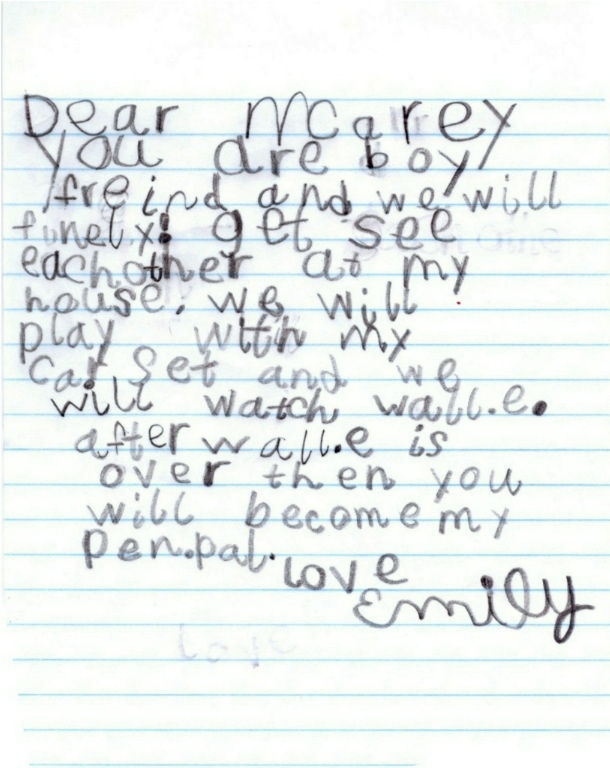 Dear Mcarey
you are boy
freind and we will
finelx! get see
eachother at my
house. we will
play with my
Car Set and we
will watch wall.e.
after wall.e is
over then you
will become my
Pen.pal.
Love
Emily
Love